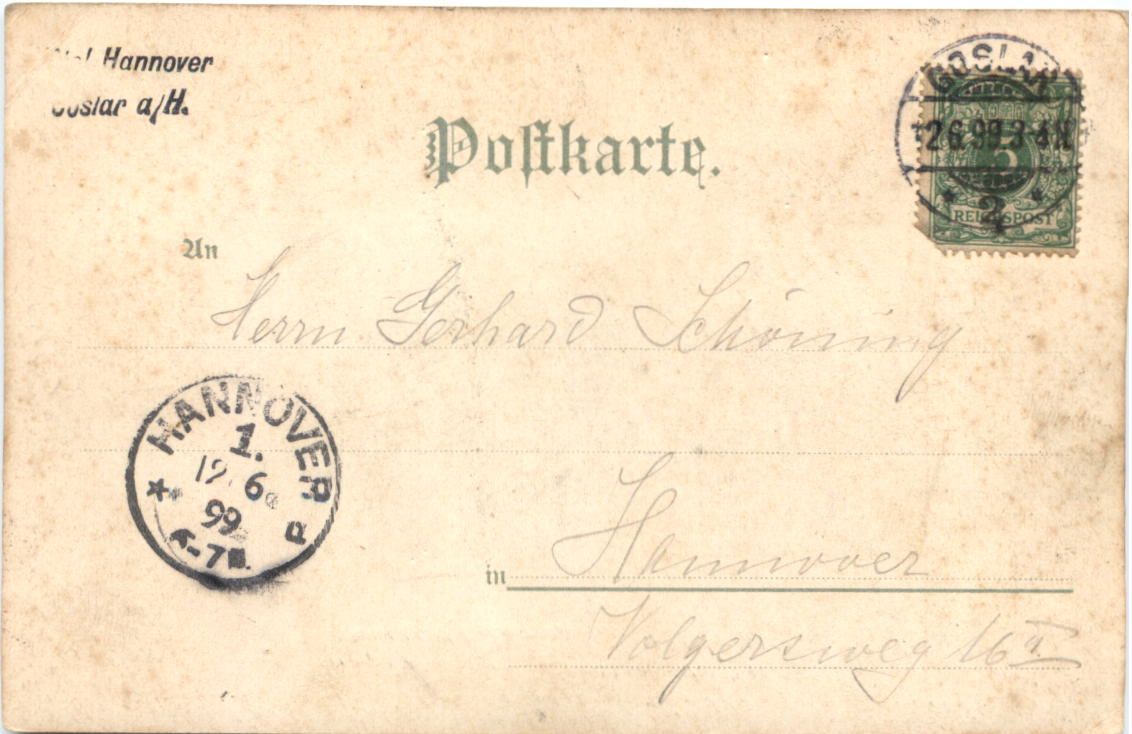 Hannover
Goslar a/H.
GOSLAR
12.6.99.3-4N
* 2 *
5
REICHSPOST
Poſtkarte.
An
Herrn Gerhard Schöning
HANNOVER P
1.
12.6
99
6-7N.
in Hannover
Volgersweg 16 I